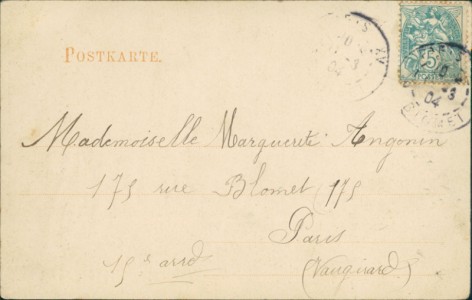 POSTKARTE.
PARIS
PARIS
04
5
Mademoiselle Marguerite Angonin
175 rue Blomet 175
Paris
15e arrd (Vaugirard)